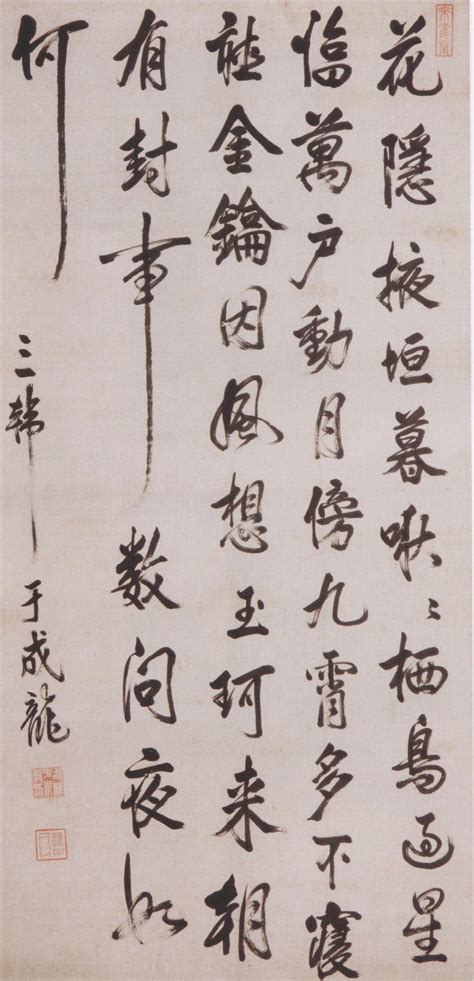 花隱掖垣暮啾〻栖鳥過星
臨萬户動月傍九霄多不寢
聽金鑰因風想玉珂来朝
有封事数問夜如
何
三韓于成龍